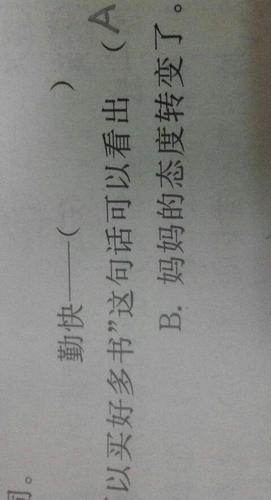 词。
勤快——( )
以买好多书”这句话可以看出 (A
B. 妈妈的态度转变了。